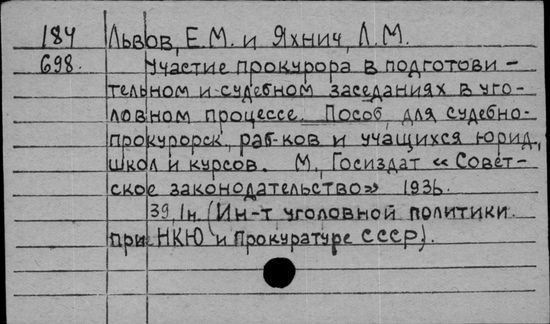 184 Львов, Е.М. и Яхнич, Л.М.
698. Участие прокурора в подготови-
тельном и судебном заседаниях в уго-
ловном процессе. Пособ. для судебно-
прокурорск. раб-ков и учащихся юрид.,
школ и курсов. М., Госиздат «Совет-
ское законодательство» 1936.
39,1н. (Ин-т уголовной политики
при НКЮ и Прокуратуре СССР).